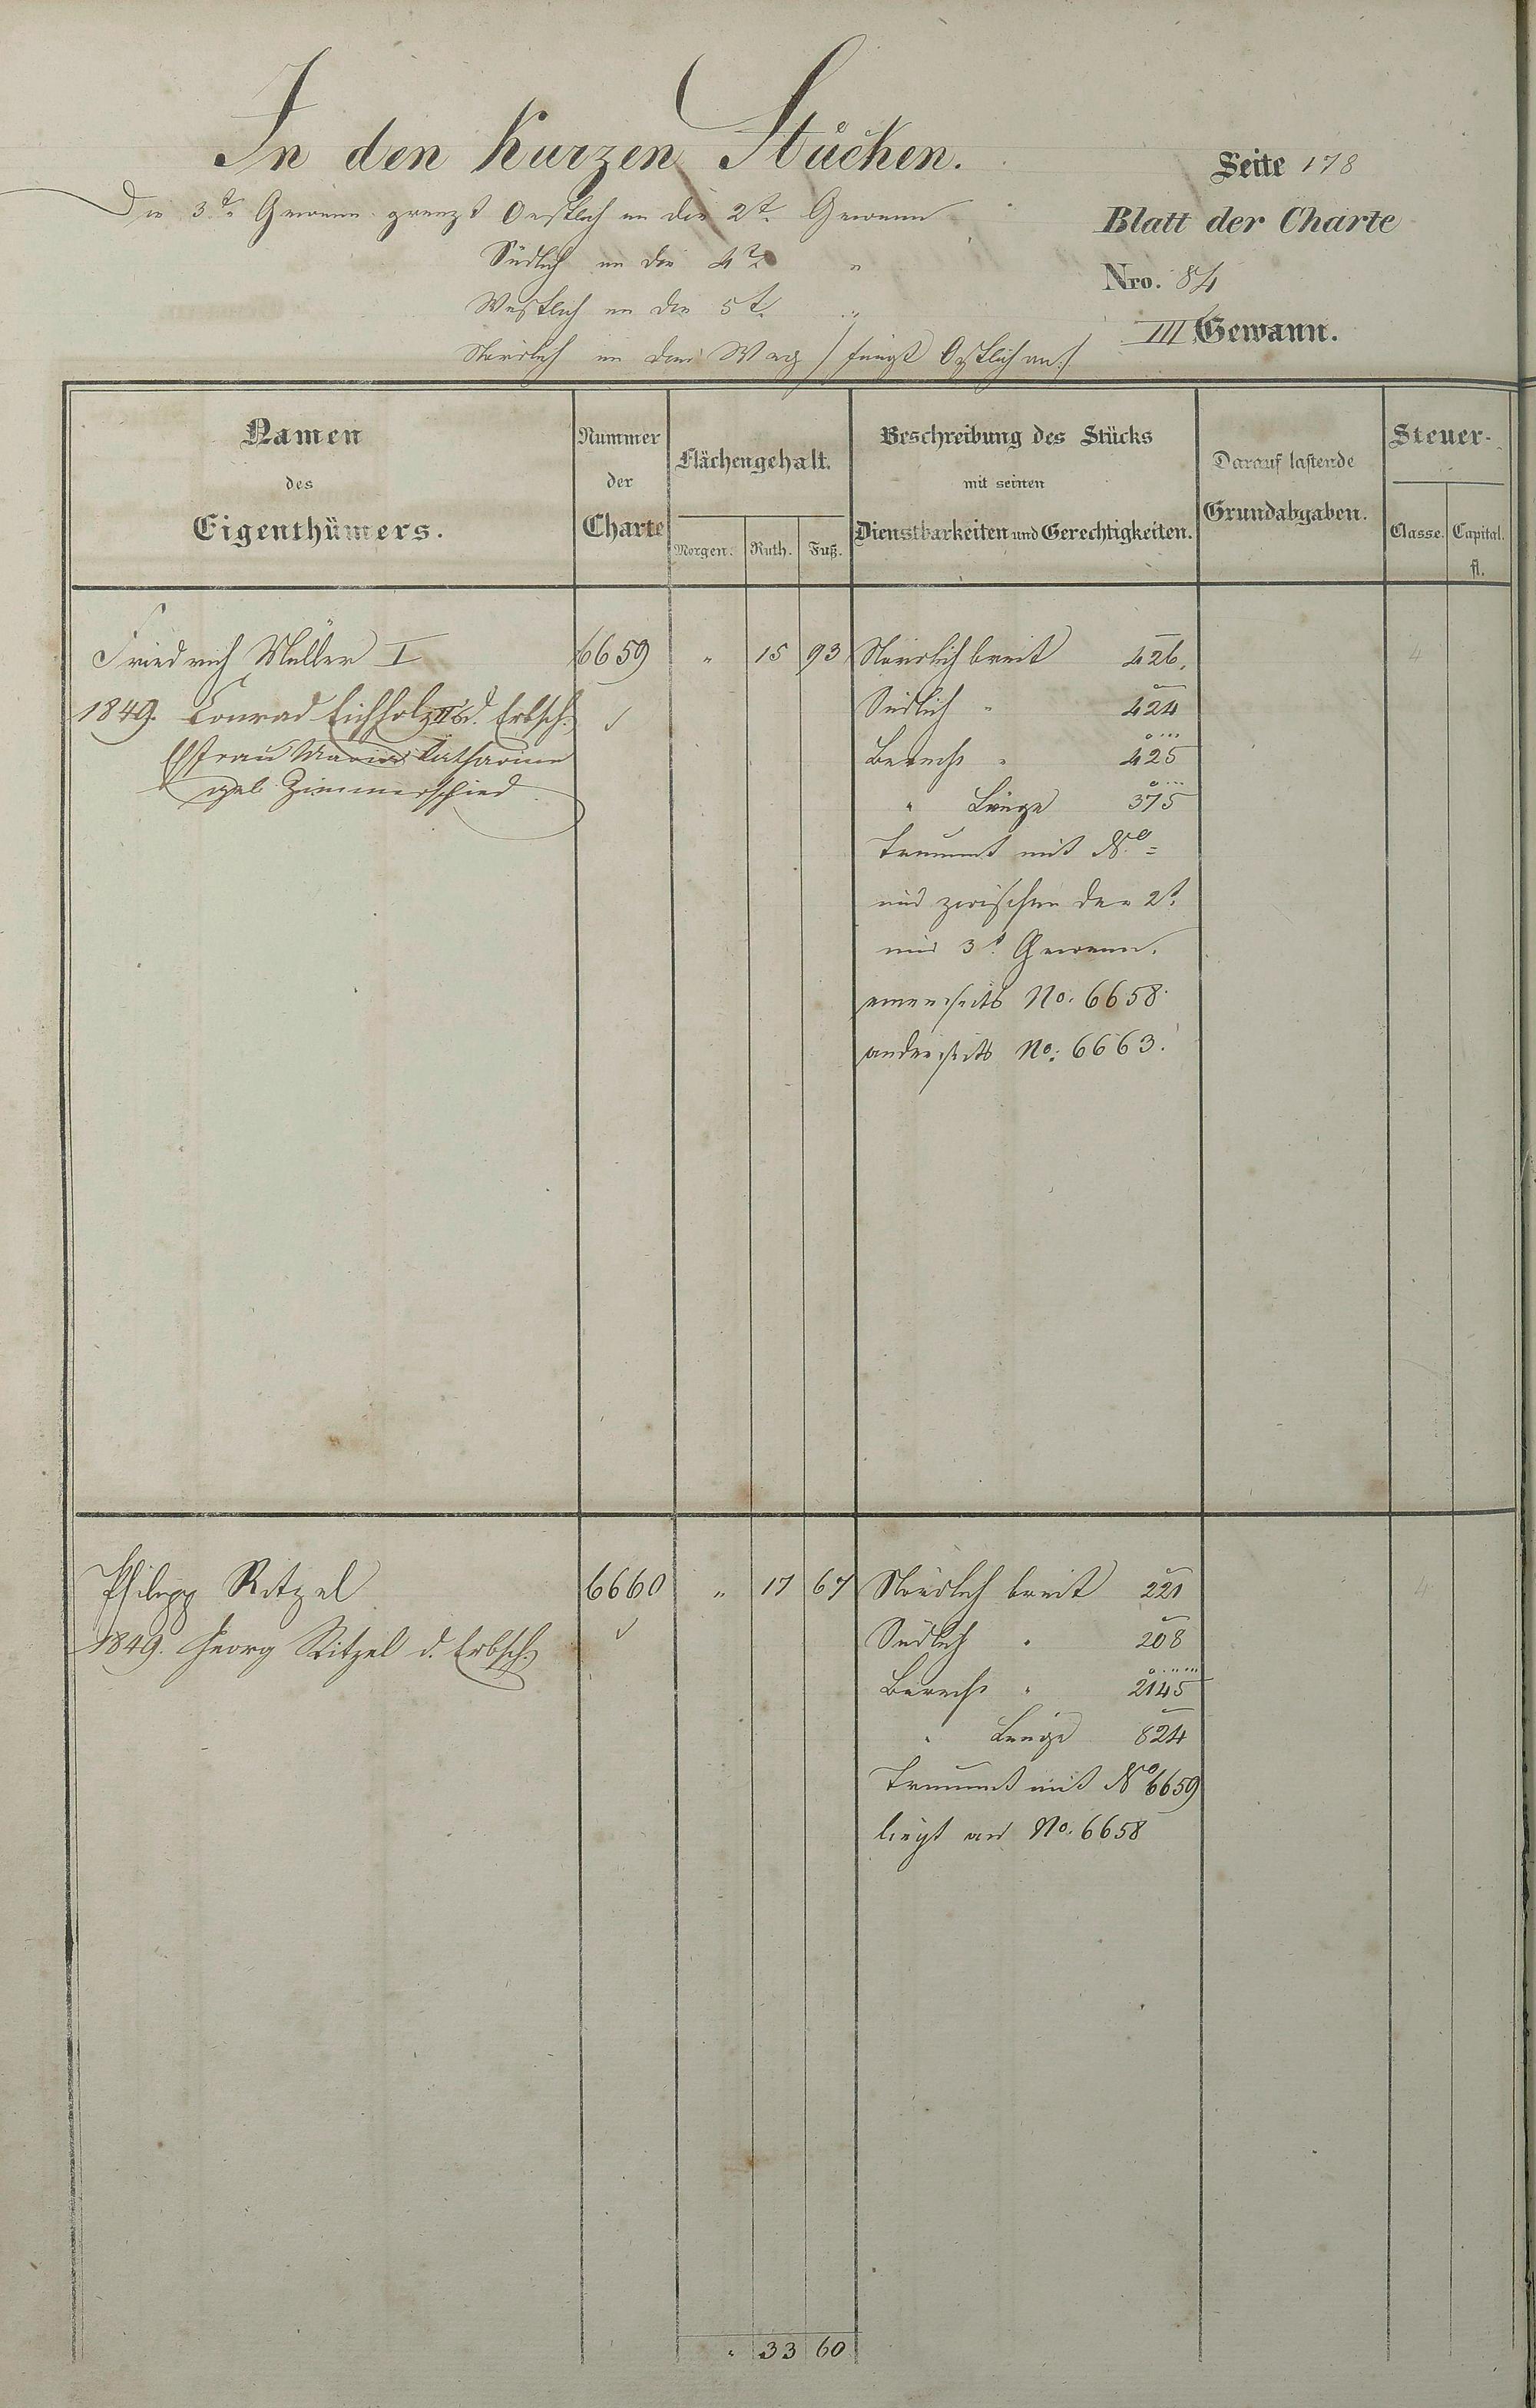 In den Kurzen Stücken.
Seite 178
Die 3te Gewann grenzt Oestlich an die 2t. Gewann
Blatt der Charte
Südlich an die 4te "
Nro. 84
Westlich an die 5t. "
III Gewann.
Nördlich an den Weg / fängt Östlich an /
Namen
des
Eigenthümers.
Nummer
der
Charte
Flächengehalt.
Morgen. Ruth. Fuß.
Beschreibung des Stücks
mit seinen
Dienstbarkeiten und Gerechtigkeiten.
Darauf lastende
Grundabgaben.
Steuer-
Classe. Capital.
fl.
Friedrich Müller I 6659 " 15 93 Nördlich breit 426. 4
1849. Conrad Eichholz II's d. Erbsch. Südlich " 424
Ehefrau Maria Catharine Berechs " 425
geb. Zimmerschied " Länge 375
Traumt mit No =
und zwischen der 2t.
und 3t. Gewann.
einerseits No. 6658.
anderseits No: 6663.
Philipp Ritzel 6660 " 17 67 Nördlich breit 221 4
1849. Georg Ritzel d. Erbsch. Südlich " 208
Berechs " 2145
" Länge 824
Traumt mit No 6659
liegt an No. 6658
" 33 60